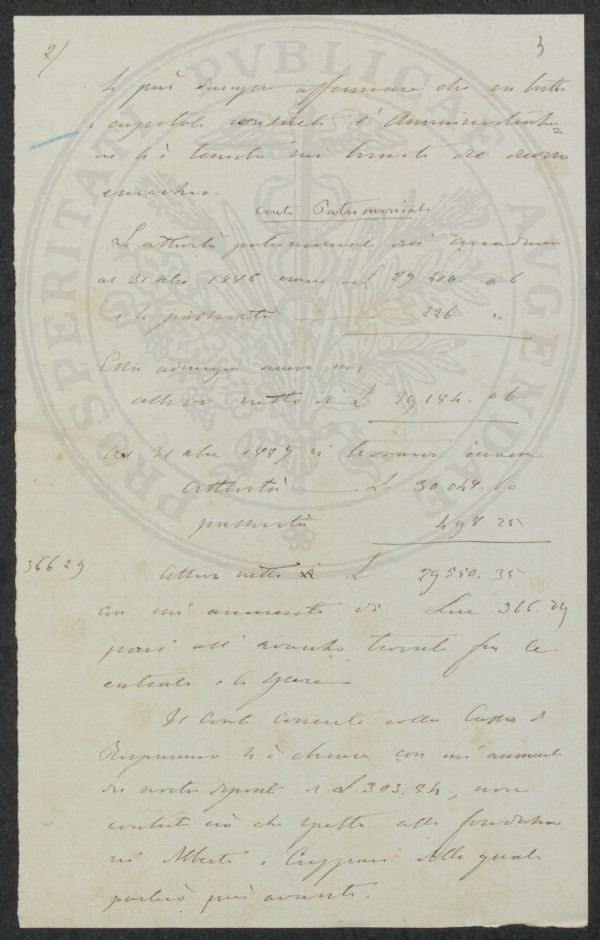 2/ 3
Si può dunque affermare che in tutti
i capitoli l'Amministrazione
si è tenuta nei limiti del
Conto Patrimoniale
Le attività patrimoniali dell'Accademia
al 31 Xbre 1886 erano di £ 29 410. 06
e le passività 226 "
attivo netto di £ 29184. 06
Al 31 Xbre 1887 si trovano invece
attività £ 30 048. 60
passività 498 25
366 29 Attivo netto £ 29550. 35
con un' aumento di Lire 366. 29
pari all' avanzo trovato fra le
entrate e le spese
Il Conto Corrente colla Cassa di
Risparmio si è chiuso con un' aumento
dei nostri depositi di £ 303. 84, non
contato ciò che spetta alla fondazione
Alberti e delle quali
parlerò più avanti.
PROSPERITATI PVBLICAE AVGENDAE